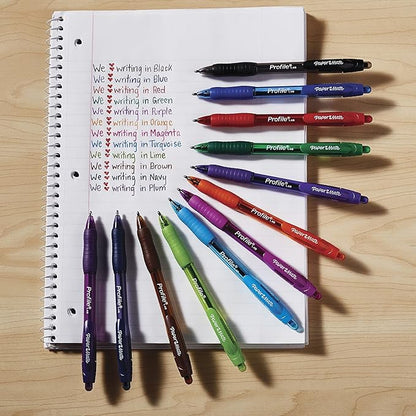 We ♥ writing in Black
We ♥ writing in Blue
We ♥ writing in Red
We ♥ writing in Green
We ♥ writing in Purple
We ♥ writing in Orange
We ♥ writing in Magenta
We ♥ writing in Turquoise
We ♥ writing in Lime
We ♥ writing in Brown
We ♥ writing in Navy
We ♥ writing in Plum
Profile PaperMate
Profile PaperMate
Profile PaperMate
Profile PaperMate
Profile PaperMate
Profile PaperMate
Profile PaperMate
Profile PaperMate
Profile PaperMate
Profile PaperMate
Profile PaperMate
Profile PaperMate